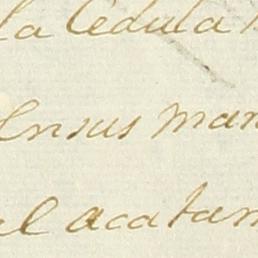 la Cedula
en sus man
el acatam